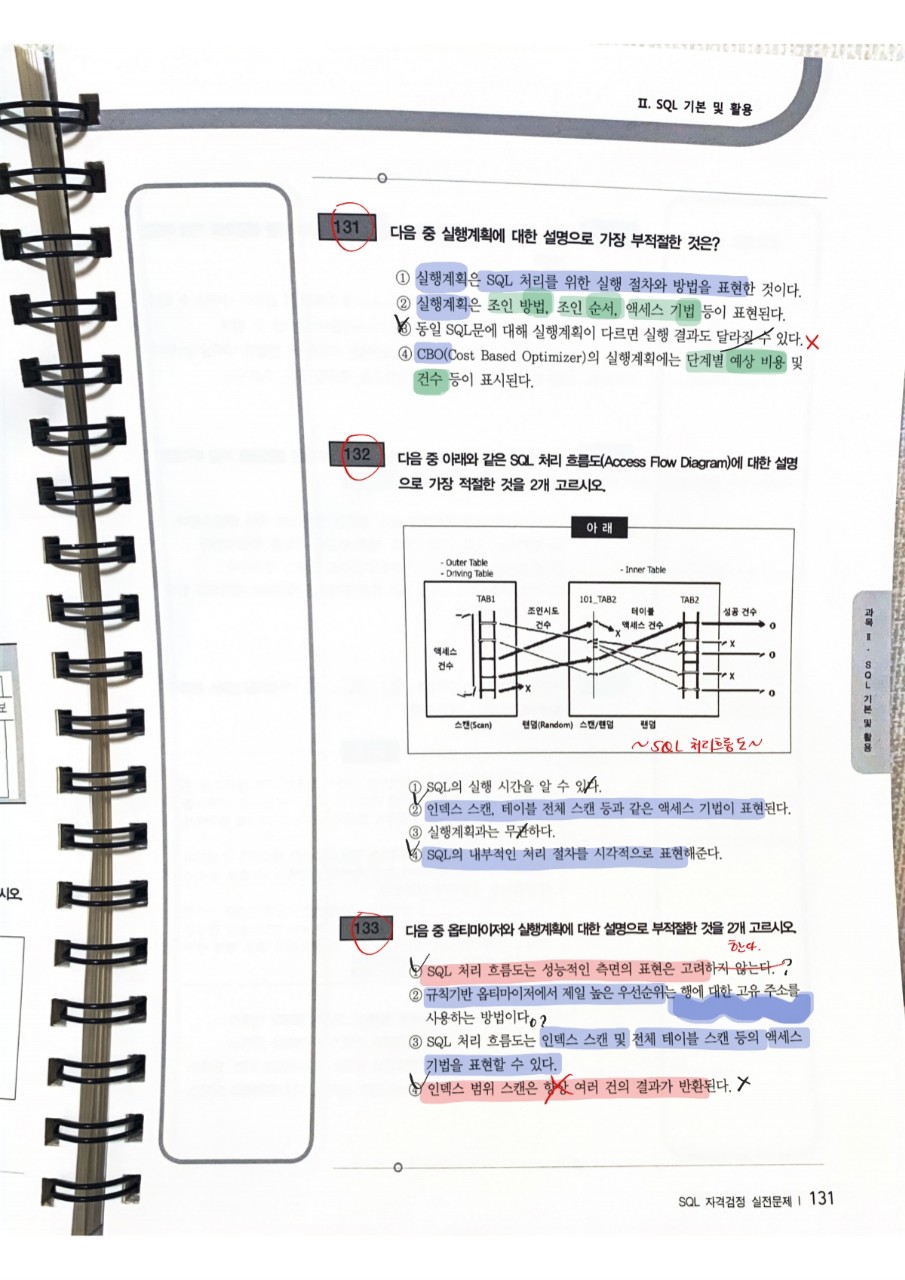 II. SQL 기본 및 활용
131 다음 중 실행계획에 대한 설명으로 가장 부적절한 것은?
① 실행계획은 SQL 처리를 위한 실행 절차와 방법을 표현한 것이다.
② 실행계획은 조인 방법, 조인 순서, 액세스 기법 등이 표현된다.
③ 동일 SQL문에 대해 실행계획이 다르면 실행 결과도 달라질 수 있다. X
④ CBO(Cost Based Optimizer)의 실행계획에는 단계별 예상 비용 및
건수 등이 표시된다.
132 다음 중 아래와 같은 SQL 처리 흐름도(Access Flow Diagram)에 대한 설명
으로 가장 적절한 것을 2개 고르시오.
아 래
- Outer Table
- Driving Table
- Inner Table
TAB1 조인시도 I01_TAB2 테이블 TAB2 성공 건수
건수 액세스 건수
액세스
건수
X
X
X
X
O
O
O
스캔(Scan) 랜덤(Random) 스캔/랜덤 랜덤
~SQL 처리흐름도~
① SQL의 실행 시간을 알 수 있다.
② 인덱스 스캔, 테이블 전체 스캔 등과 같은 액세스 기법이 표현된다.
③ 실행계획과는 무관하다.
④ SQL의 내부적인 처리 절차를 시각적으로 표현해준다.
133 다음 중 옵티마이저와 실행계획에 대한 설명으로 부적절한 것을 2개 고르시오.
한다.
① SQL 처리 흐름도는 성능적인 측면의 표현은 고려하지 않는다. ?
② 규칙기반 옵티마이저에서 제일 높은 우선순위는 행에 대한 고유 주소를
사용하는 방법이다. o?
③ SQL 처리 흐름도는 인덱스 스캔 및 전체 테이블 스캔 등의 액세스
기법을 표현할 수 있다.
④ 인덱스 범위 스캔은 항상 여러 건의 결과가 반환된다. X
과목 II - SQL 기본 및 활용
보
시오.
SQL 자격검정 실전문제 | 131